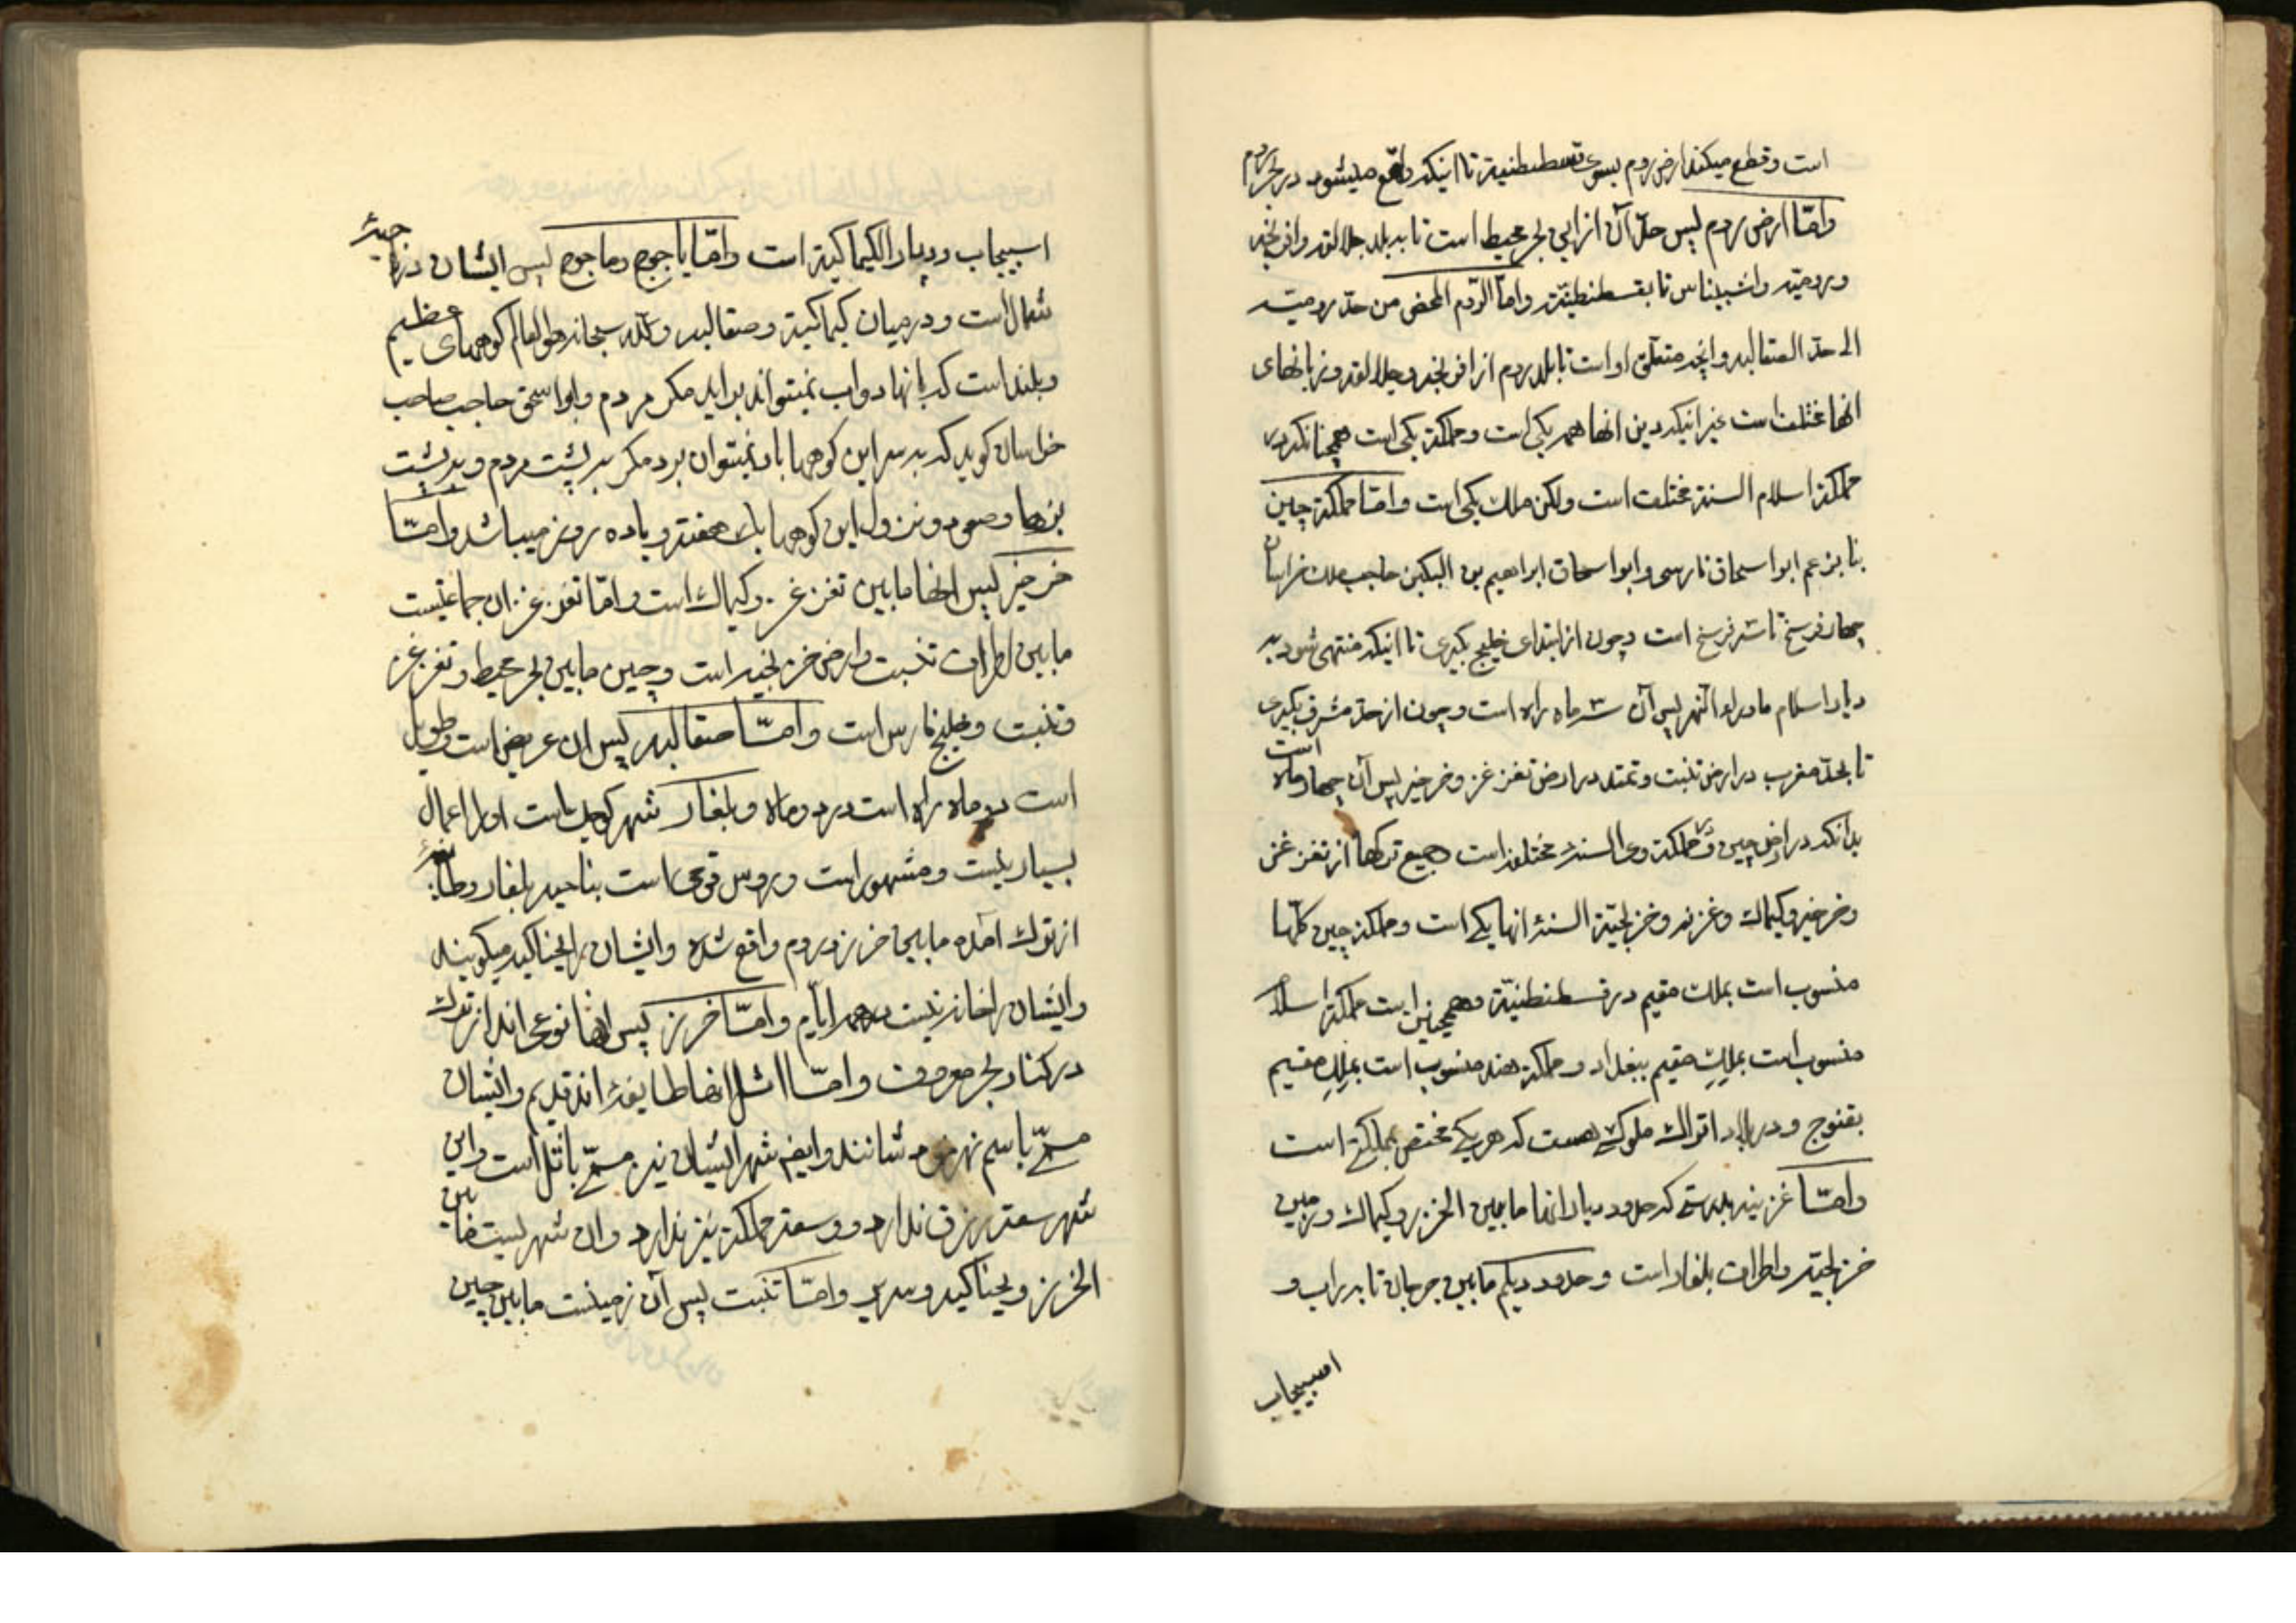 است و قطع میکند ارض روم بسوی قسطنطنیة تا اینکه واقع میشود در بحر روم
وامّا ارض روم پس حدّ آن از این بحر محیط است تا به بلد جلالقه وافرنجه
ورومیّه واشیناس تا بقسطنطنیّه وامّا الرّوم المحض من حدّ رومیّه
الی حدّ الصقالبه وانچه متعلّق او است تا بلد روم از افرنجه وجلالقه وزبانهای
انها مختلف است غیر انیکه دین انها همه یکی است ومملکة یکی است همچنانکه در
مملکة اسلام السنة مختلف است ولکن ملك یکی است وامّا مملکة چین
بنا بزعم ابو اسحاق فارسی وابو اسحاق ابراهیم بن البکین حاجب ملك خراسان
چهار فرسخ تا سه فرسخ است وچون از ابتدای خلیج بکیری تا اینکه منتهی شود به
دیار اسلام ماوراء النهر پس آن ۳ ماه راه است وچون از حدّ مشرق بکیری
تا بحدّ مغرب در ارض تبّت وتمتد در ارض تغزغز وخرخیز پس آن چهار ماه است
بدانکه در ارض چین و مملکة وی السنهٔ مختلفه است جمیع ترکها از تغزغز
وخرخیز وکیماك وغزیه وخزلجیّة السنهٔ انها یکی است ومملکة چین کلّها
منسوب است بملك مقیم در قسطنطنیّة وهمچنین است مملکة اسلام
منسوب است بملكِ مقیم ببغداد ومملکة هند منسوب است بملكِ مقیم
بقنوج ودر بلاد اتراك ملوکی هست که هر یکی مختص بمملکتی است
وامّا غزیه بدرستی که حدود دیار انها مابین الخزر وکیماك وزمین
خزلجیّه واطراف بلغار است وحدود دیلم مابین جرجان تا به راب و
اسبیجاب
اسبیجاب ودیار الکیماکیّة است وامّا یاجوج وماجوج پس ایشان در ناحیهٔ
شمال است ودر میان کیماکیّة وصقالبه والله سبحانه هو العالم کوههای عظیم
وبلند است که بانها دواب نمیتواند براید مکر مردم وابو اسحق حاجب صاحب
خراسان کوید که به سر این کوهها بار نمیتوان برد مکر به پشت مردم وبه پشت
بزها وصعود ونزول این کوهها یك هفته ویا ده روز میباشد وامّا
خرخیز پس انها مابین تغزغز وکیماك است وامّا تغزغز ان جماعتیست
مابین اطراف تبّت وارض خزلجیه است وچین مابین بحر محیط وتغزغز
وتبّت وخلیج فارس است وامّا صقالبه پس ان عریض است وطویل
است دو ماه راه است در دو ماه وبلغار شهر کوچك است او را اعمال
بسیار نیست ومشهور است وروس قومی است بناحیه بلغار وطایفهٔ
از ترك آمده مابین خزر وروم واقع شده وایشان را بجناکیه میکویند
وایشان را خانه نیست همه ایّام وامّا خزر پس انها نوعی اند از ترك
در کنار بحر معروف وامّا اثل انها طایفهٔ اند قدیم وایشان
مسمّی باسم نهر خودشانند وایضا شهر ایشان نیز مسمّی باثل است واین
شهر سعة رزق ندارد ووسعة مملکة نیز ندارد وان شهریست مابین
الخزر وبجناکیه وسریر وامّا تبّت پس آن زمینیست مابین چین